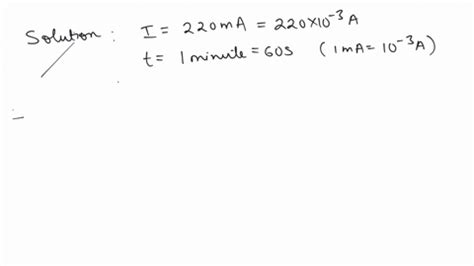 Solution : I = 220mA = 220×10⁻³ A
t = 1 minute = 60s (1mA = 10⁻³A)